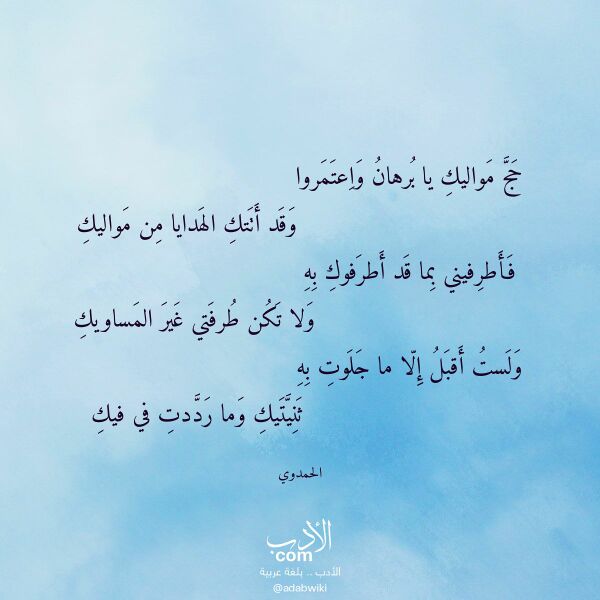 حَجَّ مَواليكِ يا بُرهانُ وَاِعتَمَروا
وَقَد أَتَتكِ الهَدايا مِن مَواليكِ
فَأَطرِفيني بِما قَد أَطرَفوكِ بِهِ
وَلا تَكُن طُرفَتي غَيرَ المَساويكِ
وَلَستُ أَقبَلُ إِلّا ما جَلَوتِ بِهِ
ثَنِيَّتَيكِ وَما رَدَّدتِ في فيكِ
الحمدوي
الأدب
com
الأدب .. بلغة عربية
@adabwiki